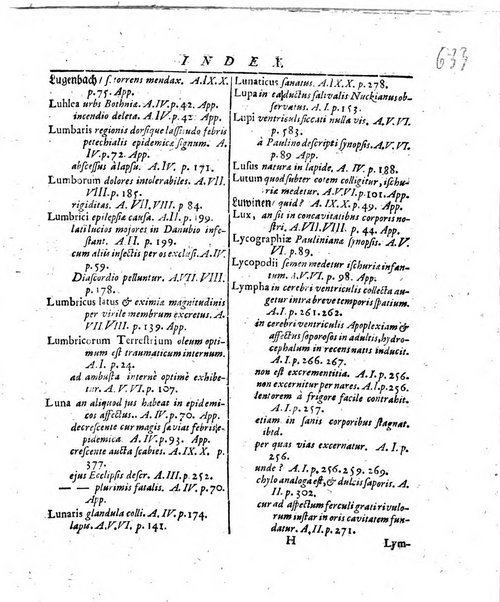 INDEX
633
Lugenbach / s. torrens mendax. A.IX.X.
p.75. App.
Luhlea urbs Bothniæ. A.IV.p.42. App.
incendio deleta. A.IV.p.42. App.
Lumbaris regionis dorsique lassitudo febris
petechialis epidemicæ signum. A.
IV.p.72. App.
abscessus à lapsu. A.IV. p. 171.
Lumborum dolores intolerabiles. A.VII.
VIII.p. 185.
rigiditas. A. VII. VIII. p 84.
Lumbrici epilepsiæ causa. A. II. p. 199.
lati lucios majores in Danubio infe-
stant. A. II. p. 199.
cum aliis insectis per os exclusi. A.IV.
p. 59.
Diascordio pelluntur. A.VII.VIII.
p. 178.
Lumbricus latus & eximiæ magnitudinis
per virile membrum excretus. A.
VII VIII. p. 139. App.
Lumbricorum Terrestrium oleum opti-
mum est traumaticum internum.
A. I. p. 24.
ad ambusta internè optimè exhibe-
tur. A. V.VI. p. 107.
Luna an aliquod jus habeat in epidemi-
cos affectus.. A. IV. p. 70. App.
decrescente cur magis sæviat febris e-
pidemica. A. IV.p.93. App.
crescente aucta scabies. A.IX. X. p
377.
ejus Ecclipsis descr. A. III. p. 252.
— — plurimis fatalis. A. IV.p. 70.
App.
Lunaris glandula colli. A. IV.p.174.
lapu. A.V.VI. p. 141.
Lunaticus sanatus. A. IX.X. p. 278.
Lupa in ductus salivalis Nuckianus ob-
servatus. A. I. p. 153.
Lupi ventriculi siccati nulla vis. A. V.VI.
p. 583.
à Paulino descripti synopsis. A.V.VI.
p. 89 App.
Lusus natura in lapide. A. IV. p. 188.
Lutum quod subter cotem colligitur, ischu-
riæ medetur. A.V.VI.p.101. App.
Luwinen / quid? A. IX.X. p. 49. App.
Lux, an sit in concavitatibus corporis no-
stri. A. VII. VIII. p. 44. App.
Lycographiæ Paulinianæ synopsis. A. V.
VI. p.89.
Lycopodii semen medetur ischuriæ infan-
tum. A. V.VI. p. 98. App.
Lympha in cerebri ventriculis collecta au-
getur intra breve temporis spatium.
A. I. p. 261.262.
in cerebri ventriculis Apoplexiam &
affectus soporosos in adultis, hydro-
cephalum in recens natis inducit.
A. I. p. 266. 267.
non est excrementitia. A. I. p. 256.
non excernitur per nares. A. I. p. 256.
lentorem à frigore facile contrahit.
A. I. p. 257.
etiam in sanis corporibus stagnat.
ibid.
per quas vias excernatur. A. I. p.
256.
unde? A. I. p. 256.259. 269.
chylo analoga est, & dulcis saporis. A.
II. p. 302.
cur ad aspectum ferculi grati rivulo-
rum instar in oris cavitatem fun-
datur. A, II. p. 271.
H
Lym-